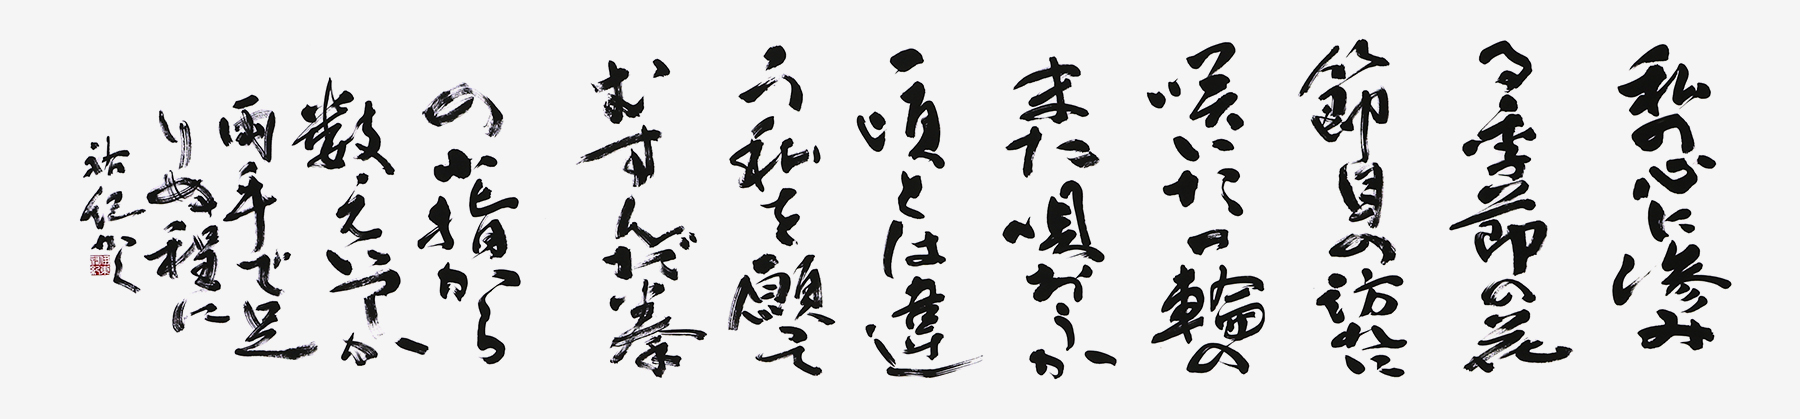 私の心に滲み
る季節の花
節目の訪れに
咲いた一輪の
また唄おうか
頃とは違
う私を願って
むすんだ拳
の小指から
数えいつか
両手で足
りぬ程に
祐仁作